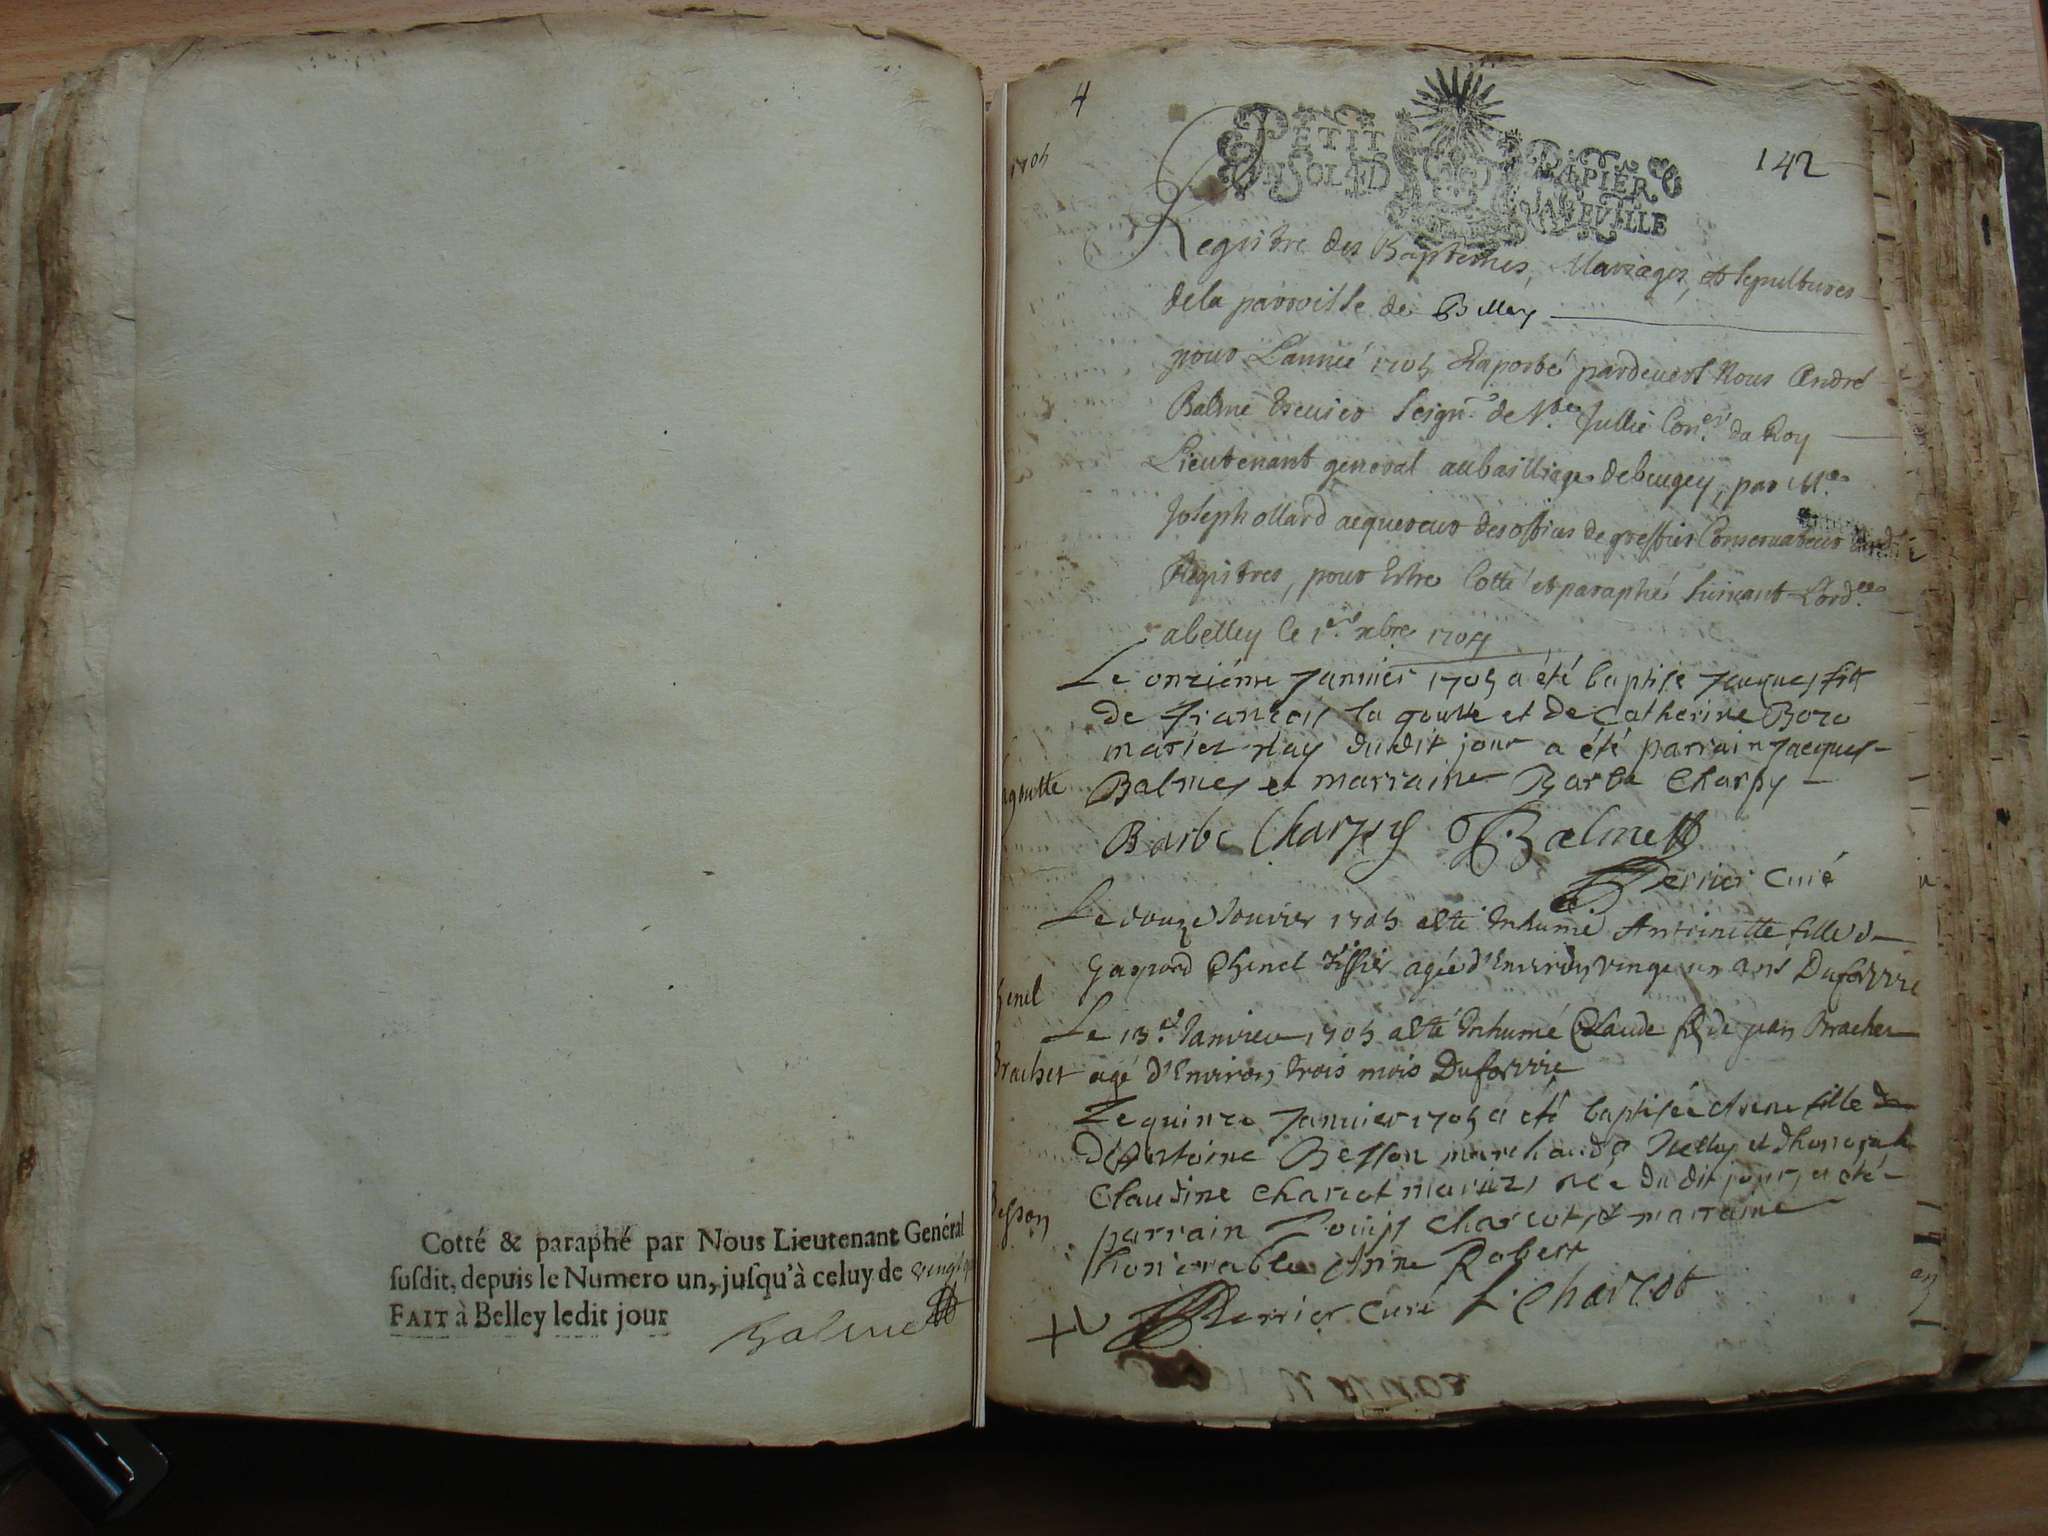 Cotté & paraphé par Nous Lieutenant Genéral
susdit, depuis le Numero un, jusqu'à celuy de vingt
FAIT à Belley ledit jour
Balme
4
1705
142
PETIT PAPIER
UN SOL 4D LA FEUILLE
Registre des Baptemes, Mariages, et sepultures
de la parroisse de Belley
pour L'année 1705 Raporté pardevant Nous André
Balme Escuier Seignr de Ste Jullie Coner du Roy
Lieutenant general au bailliage de beugey, par Me
Joseph ollard acquereur des offices de greffier Conservateur desd
Registres, pour Estre Cotté et paraphé suivant L'ordce
a belley le 1er xbre 1704
Le onziéme Januier 1705 a été baptise Jacques fils
de Francois la goutte et de Catherine Bozo
mariez nay du dit jour a été parrain Jacques
Balmes et marraine Barbe Charpy
lagoutte
Barbe Charpy Balme
Perrier Curé
Le douze Janvier 1705 a esté Inhumé Antoinette fille de
Gaspard Chenel tissier agée d'Environ vingt un ans Duforvie
henel
Le 13e Janvier 1705 a esté Inhumé Claude fils de jean Brachet
Brachet
agé d'Environ trois mois Duforvie
Le quinze Januier 1705 a été baptisée Anne fille de
d'Antoine Besson marchand a Belley et d'honorable
Claudine Charcot mariez née du dit jour, a été
Besson
parrain Louis Charcot, et marraine
honorable Anne Robert
Perrier Curé L. Charcot